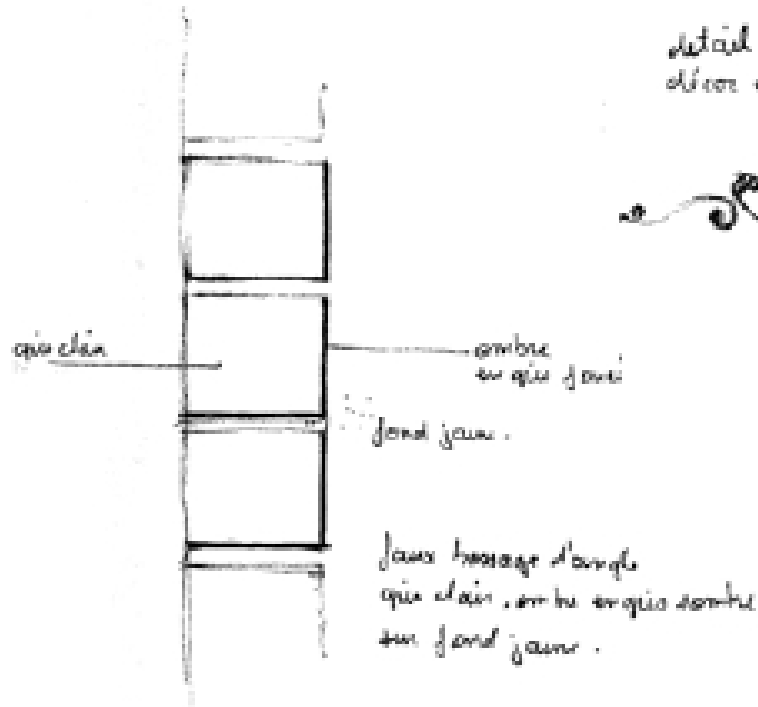 detail
décor
gris clair
ombre
en gris foncé
fond jaune.
faux bossage d'angle
gris clair, ombre en gris sombre
sur fond jaune.